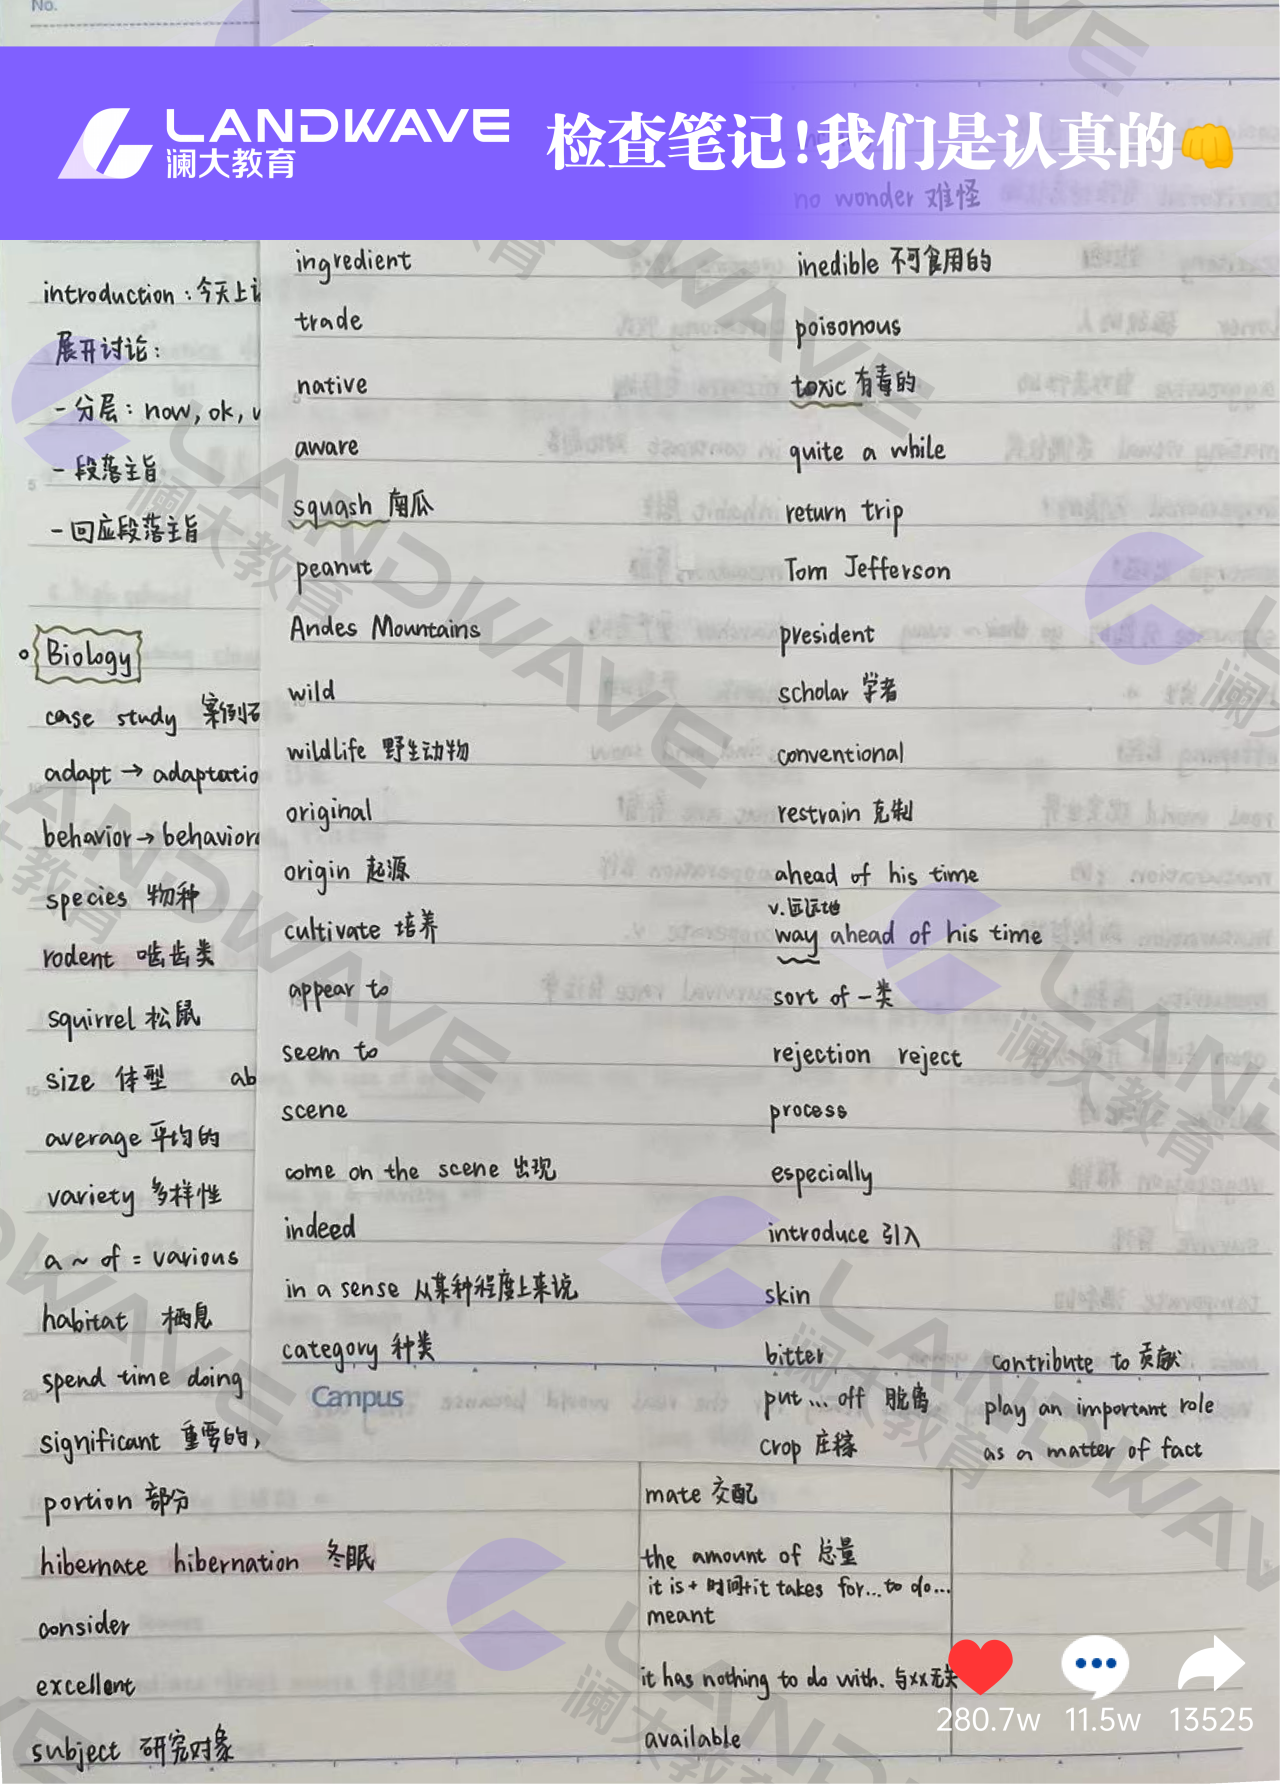 No.
LANDWAVE
澜大教育
检查笔记!我们是认真的👊
no wonder 难怪
introduction : 今天上
展开讨论:
- 分层: now, ok,
- 段落主旨
- 回应段落主旨
Biology
case study 案例
adapt → adaptatio
behavior → behavior
species 物种
rodent 啮齿类
squirrel 松鼠
size 体型 ab
average 平均的
variety 多样性
a ~ of = various
habitat 栖息
spend time doing
significant 重要的,
portion 部分
hibernate hibernation 冬眠
consider
excellent
subject 研究对象
ingredient
trade
native
aware
squash 南瓜
peanut
Andes Mountains
wild
wildlife 野生动物
original
origin 起源
cultivate 培养
appear to
seem to
scene
come on the scene 出现
indeed
in a sense 从某种程度上来说
category 种类
Campus
inedible 不可食用的
poisonous
toxic 有毒的
quite a while
return trip
Tom Jefferson
president
scholar 学者
conventional
restrain 克制
ahead of his time
v.远远地
way ahead of his time
sort of 一类
rejection reject
process
especially
introduce 引入
skin
bitter
put ... off 脱离
crop 庄稼
contribute to 贡献
play an important role
as a matter of fact
mate 交配
the amount of 总量
it is + 时间+it takes for...to do...
meant
it has nothing to do with. 与xx无关
available
280.7w 11.5w 13525